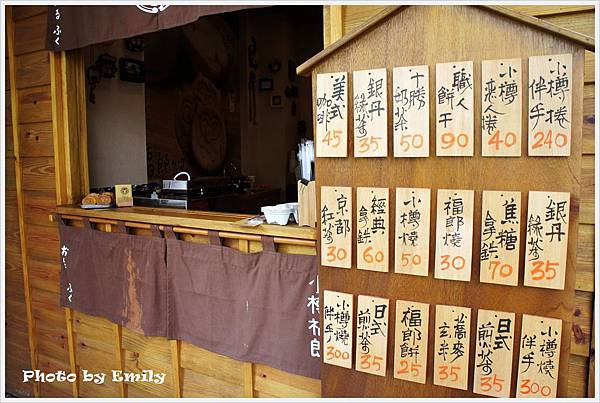 るふく
美式
咖啡
45
銀丹
綠茶
35
十勝
奶茶
50
職人
餅干
90
小樽
人捲
40
小樽捲
伴手
240
京都
紅茶
30
經典
拿鉄
60
小樽燒
50
福郎燒
30
焦糖
拿鉄
70
銀丹
綠茶
35
小樽燒
伴手
300
日式
煎茶
35
福郎餅
25
蕎麥
玄米
35
日式
煎茶
35
小樽燒
伴手
300
ふく
小樽福郎
Photo by Emily